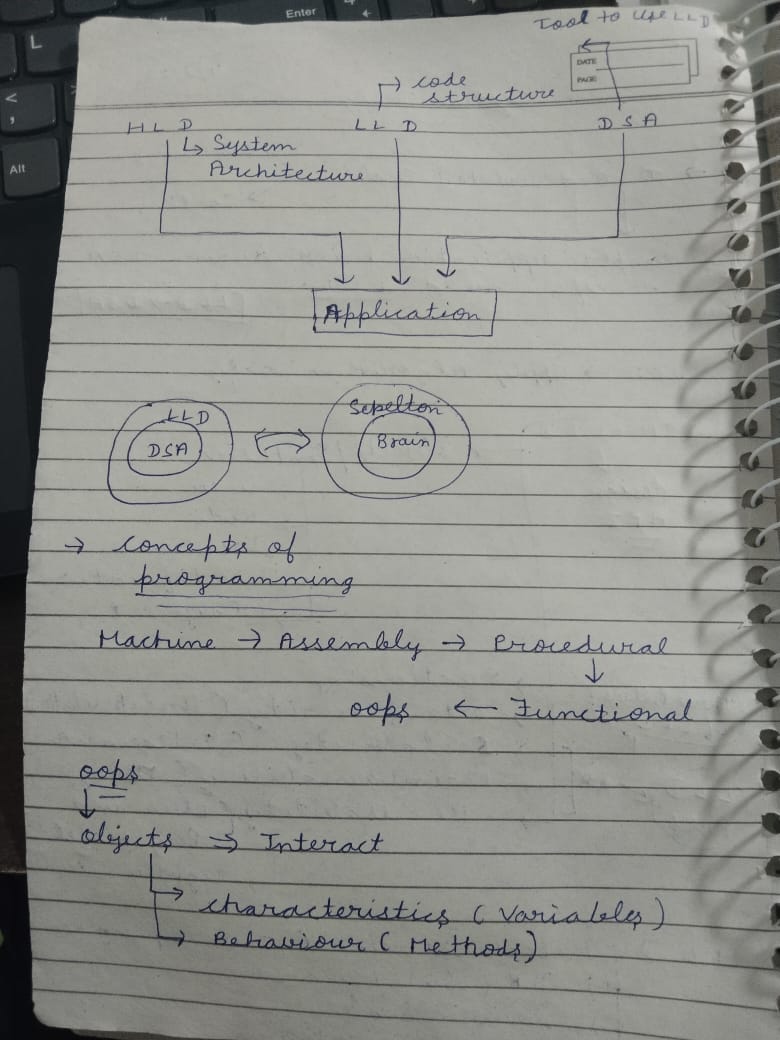 Enter
L
<
,
Alt
Tool to use LLD
DATE
PAGE
code
structure
HLD
LLD
DSA
System
Architecture
Application
LLD
DSA
Sekelton
Brain
→ Concepts of
programming
Machine → Assembly → Procedural
↓
oops ← Functional
oops
↓
objects → Interact
→ Characteristics (Variables)
→ Behaviour (Methods)